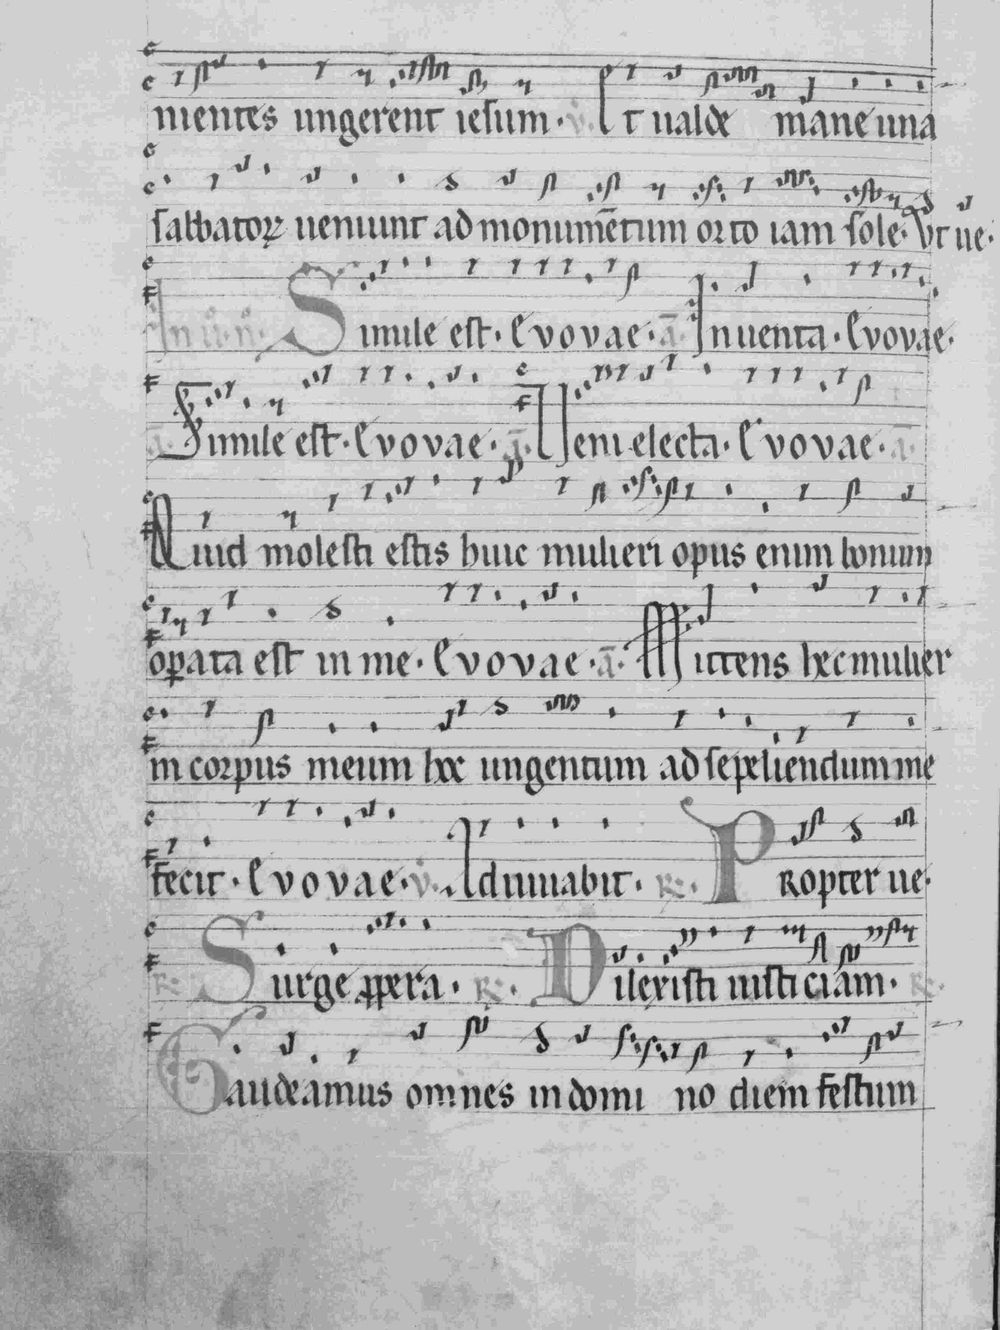 nientes ungerent iesum · v̄. Et ualde mane una
sabbatoꝝ ueniunt ad monumētum orto iam sole · Vt ue·
In iii. n̄. Simile est · Evovae · ā. Inuenta · Evovae·
ā. Simile est · Evovae · ā. Ueni electa · Evovae · ā.
Quid molesti estis huic mulieri opus enim bonum
oꝑata est in me · Evovae · ā. Mittens hec mulier
in corpus meum hoc ungentum ad sepeliendum me
fecit · Evovae · v̄. Adiuuabit · ℞. Propter ue·
℞. Surge ꝓpera · ℞. Dilexisti iusticiam · ℞.
Gaudeamus omnes in domino diem festum